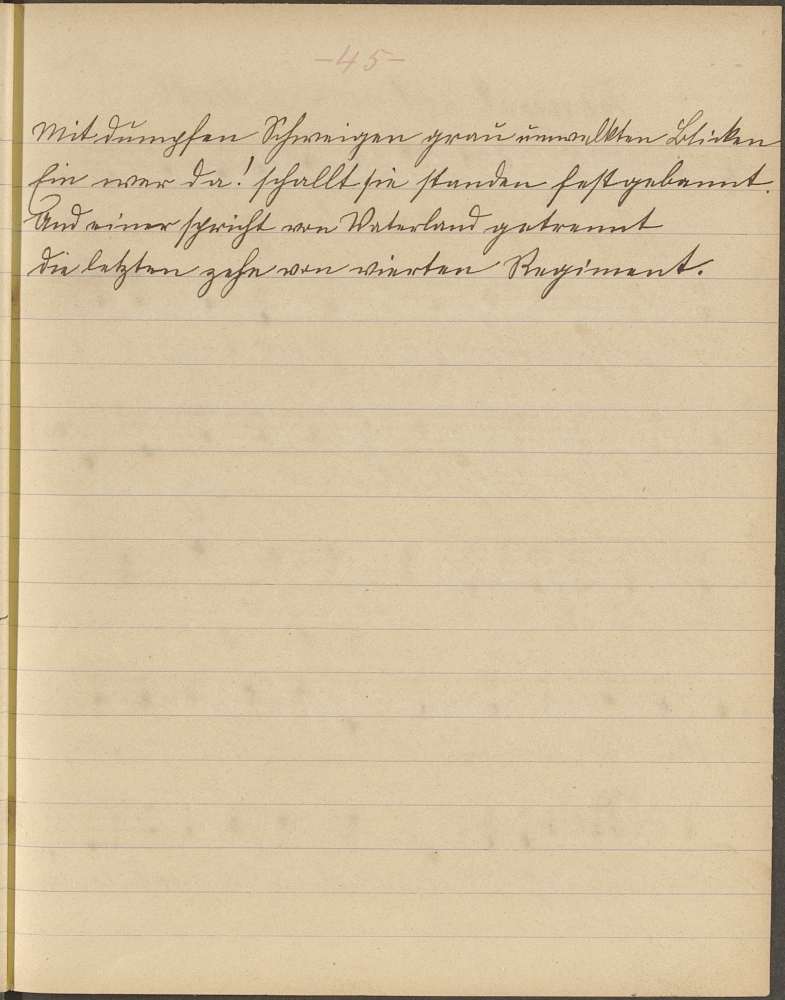 -45-
Mit dumpfen Schweigen grau umwalkten Blicken
Ein wer da! schallt sie standen festgebannt.
Und einer spricht von Vaterland getrennt
die letzten zehn von vierten Regiment.